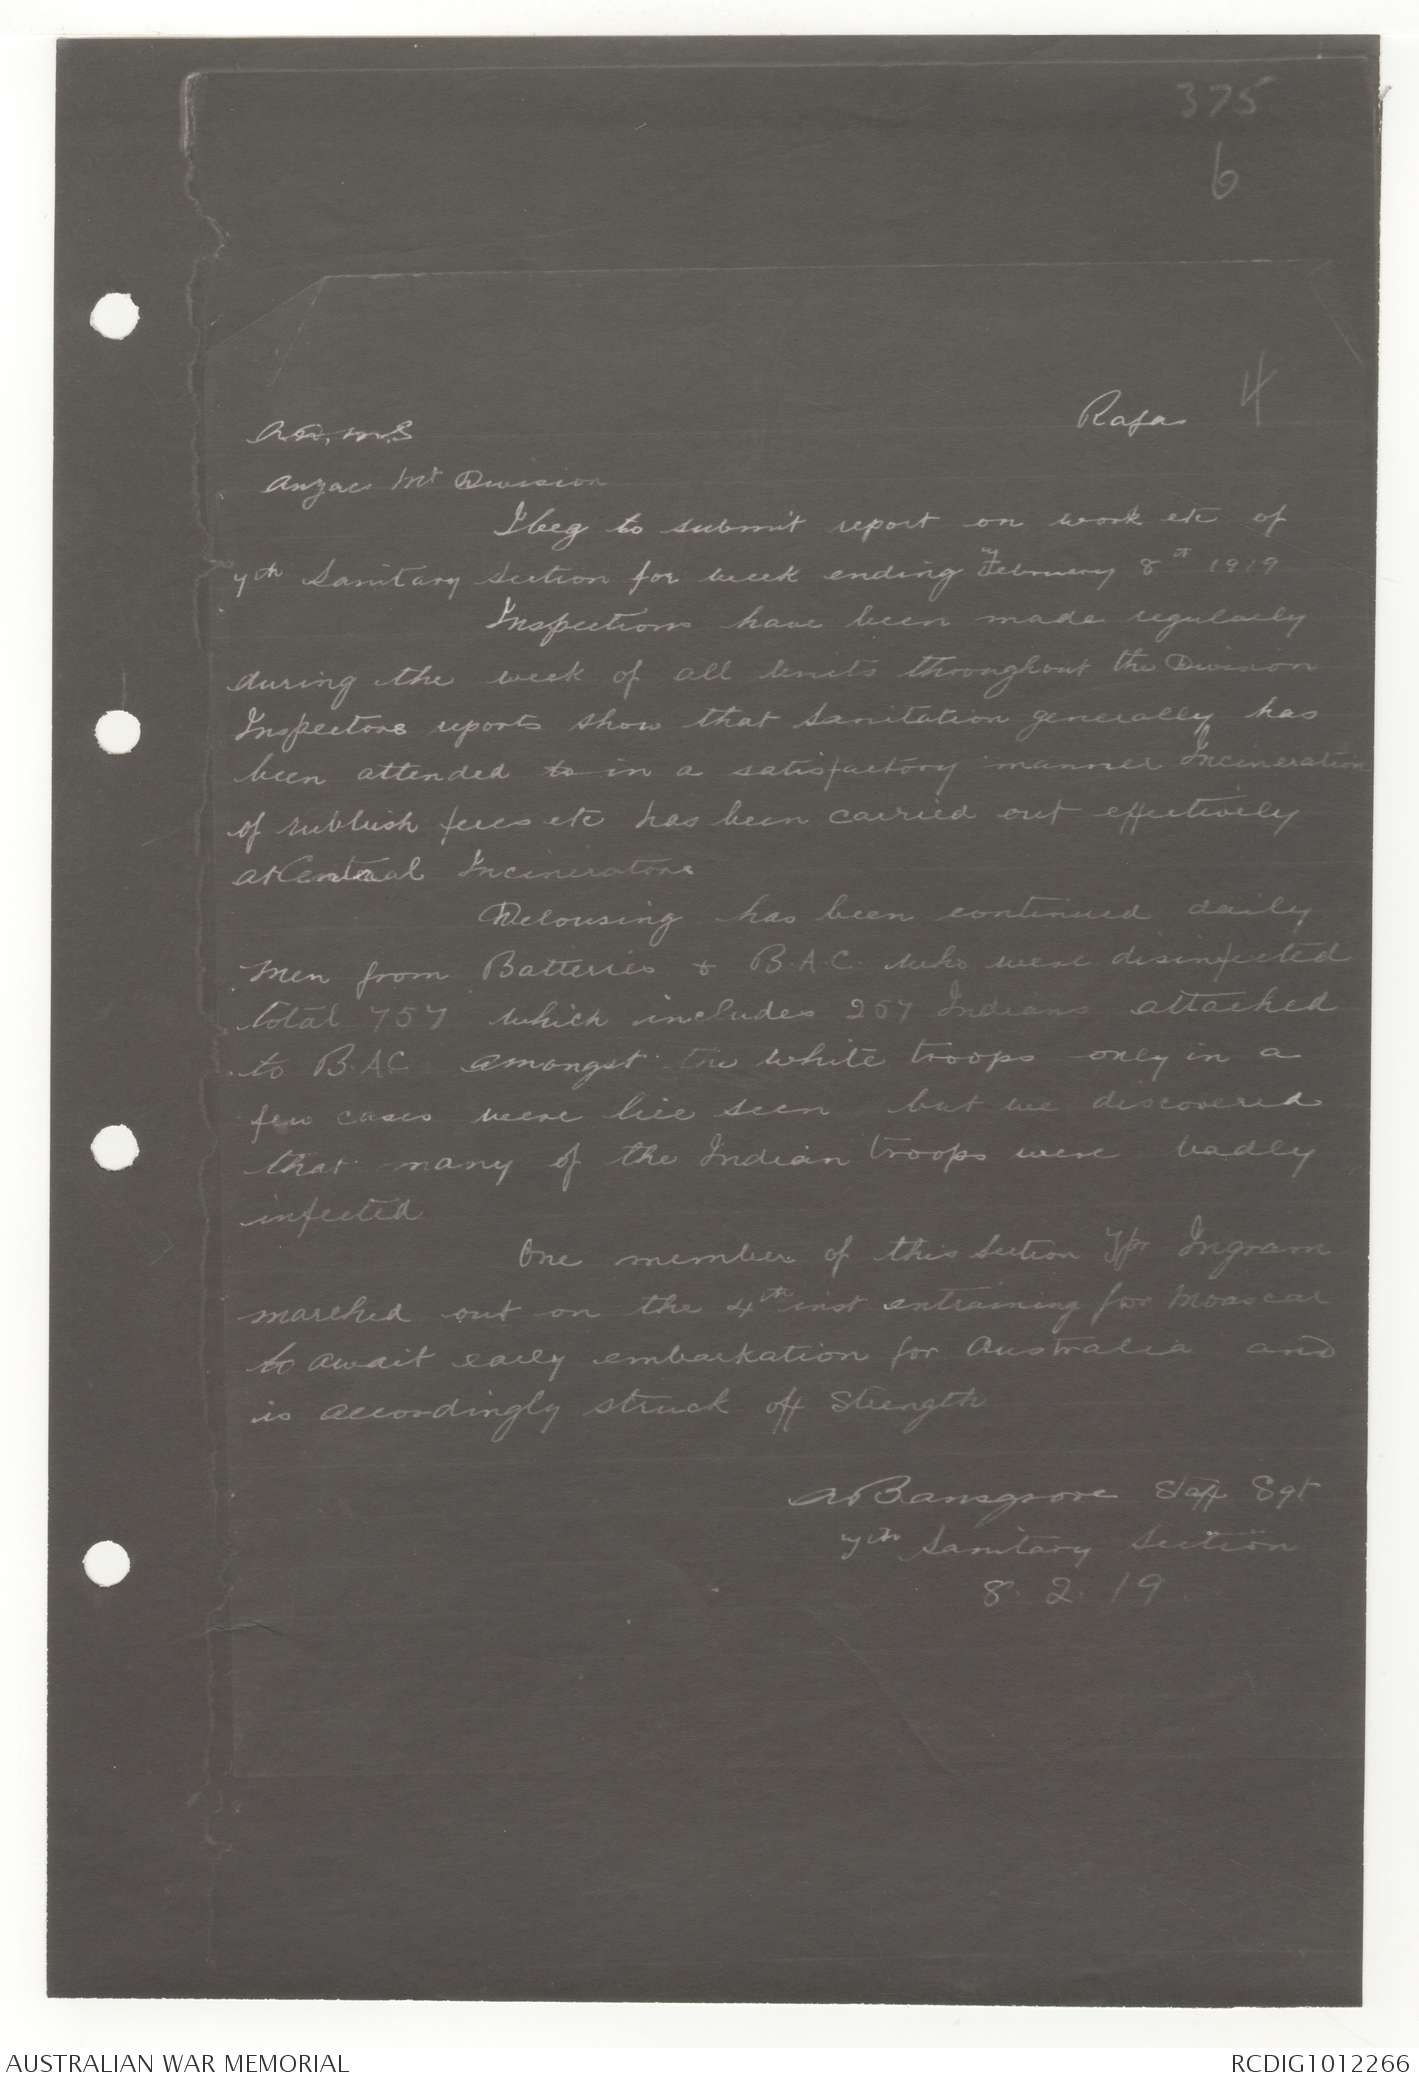 375
6
4
Rafa
A.D.M.S
Anzac Mt Division
I beg to submit report on work etc of
7th Sanitary Section for week ending February 8th 1919
Inspections have been made regularly
during the week of all units throughout the Division
Inspectors reports show that sanitation generally has
been attended to in a satisfactory manner Incineration
of rubbish feces etc has been carried out effectively
at Central Incinerators
Delousing has been continued daily
Men from Batteries & B.A.C. who were disinfected
total 757 which includes 257 Indians attached
to B.A.C. amongst the white troops only in a
few cases were lice seen but we discovered
that many of the Indian troops were badly
infected
One member of this Section Tpr Ingram
marched out on the 4th inst entraining for Moascar
to await early embarkation for Australia and
is accordingly struck off Strength
Bansgrove Staff Sgt
7th Sanitary Section
8. 2. 19
AUSTRALIAN WAR MEMORIAL
RCDIG1012266